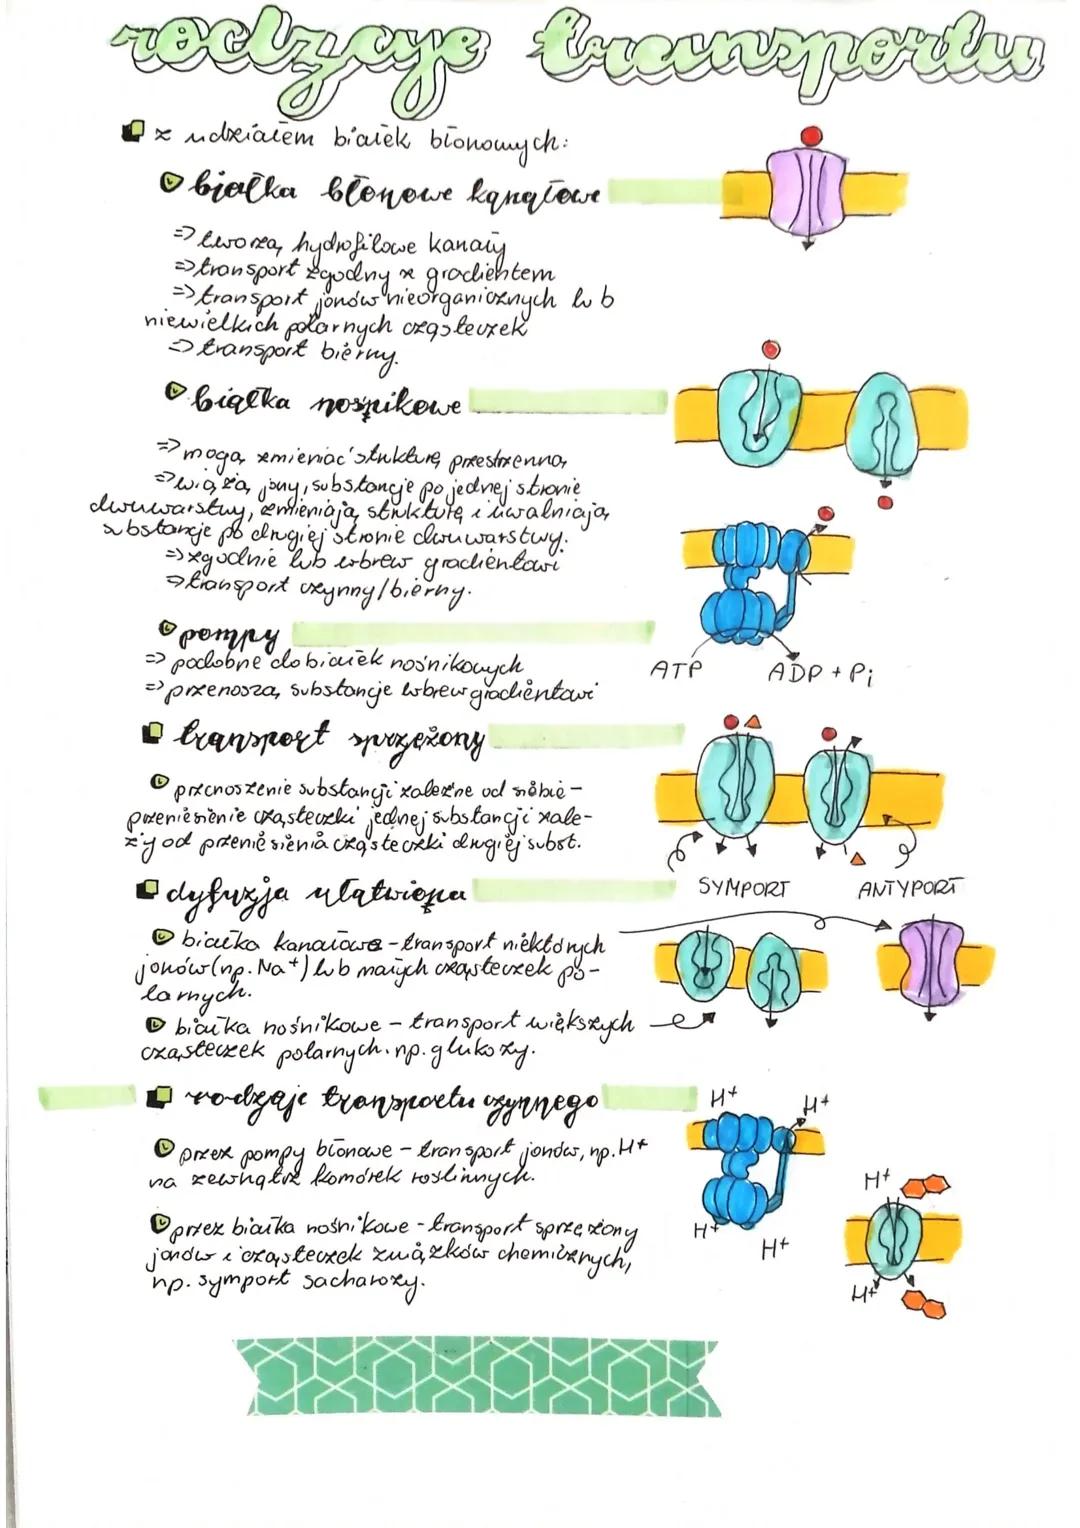 rodzaje transportu
z udziałem białek błonowych:
białka błonowe kanałowe
=> tworzą hydrofilowe kanały
=> transport zgodny z gradientem
=> transport jonów nieorganicznych lub
niewielkich polarnych cząsteczek
=> transport bierny.
białka nośnikowe
=> mogą zmieniać strukturę przestrzenną
=> wiążą jony, substancje po jednej stronie
dwuwarstwy, zmieniają strukturę i uwalniają
substancje po drugiej stronie dwuwarstwy.
=> zgodnie lub wbrew gradientowi
=> transport czynny/bierny.
pompy
=> podobne do białek nośnikowych
=> przenoszą substancje wbrew gradientowi
ATP ADP + Pi
transport sprzężony
przenoszenie substancji zależne od siebie -
przeniesienie cząsteczki jednej substancji zale-
ży od przeniesienia cząsteczki drugiej subst.
SYMPORT ANTYPORT
dyfuzja ułatwiona
białka kanałowe - transport niektórych
jonów (np. Na+) lub małych cząsteczek po-
larnych.
białka nośnikowe - transport większych
cząsteczek polarnych. np. glukozy.
rodzaje transportu czynnego
H+ H+
przez pompy błonowe - transport jonów, np. H+
na zewnątrz komórek roślinnych.
H+
przez białka nośnikowe - transport sprzężony
jonów i cząsteczek związków chemicznych,
np. symport sacharozy.
H+ H+
H+